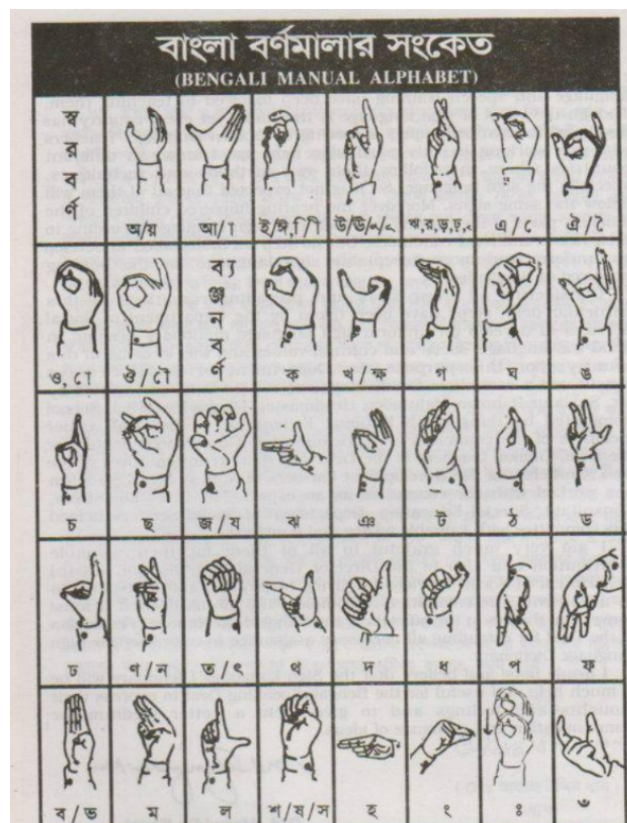 বাংলা বর্ণমালার সংকেত
(BENGALI MANUAL ALPHABET)
স্বরবর্ণ
অ/য় আ/া ই/ঈ,ি/ী উ/ঊ/ু/ূ ঋ,র,ড়,ঢ়,ৃ এ/ে ঐ/ৈ
ও,ো ঔ/ৌ ব্যঞ্জনবর্ণ ক খ/ক্ষ গ ঘ ঙ
চ ছ জ/য ঝ ঞ ট ঠ ড
ঢ ণ/ন ত/ৎ থ দ ধ প ফ
ব/ভ ম ল শ/ষ/স হ ং ঃ ঁ